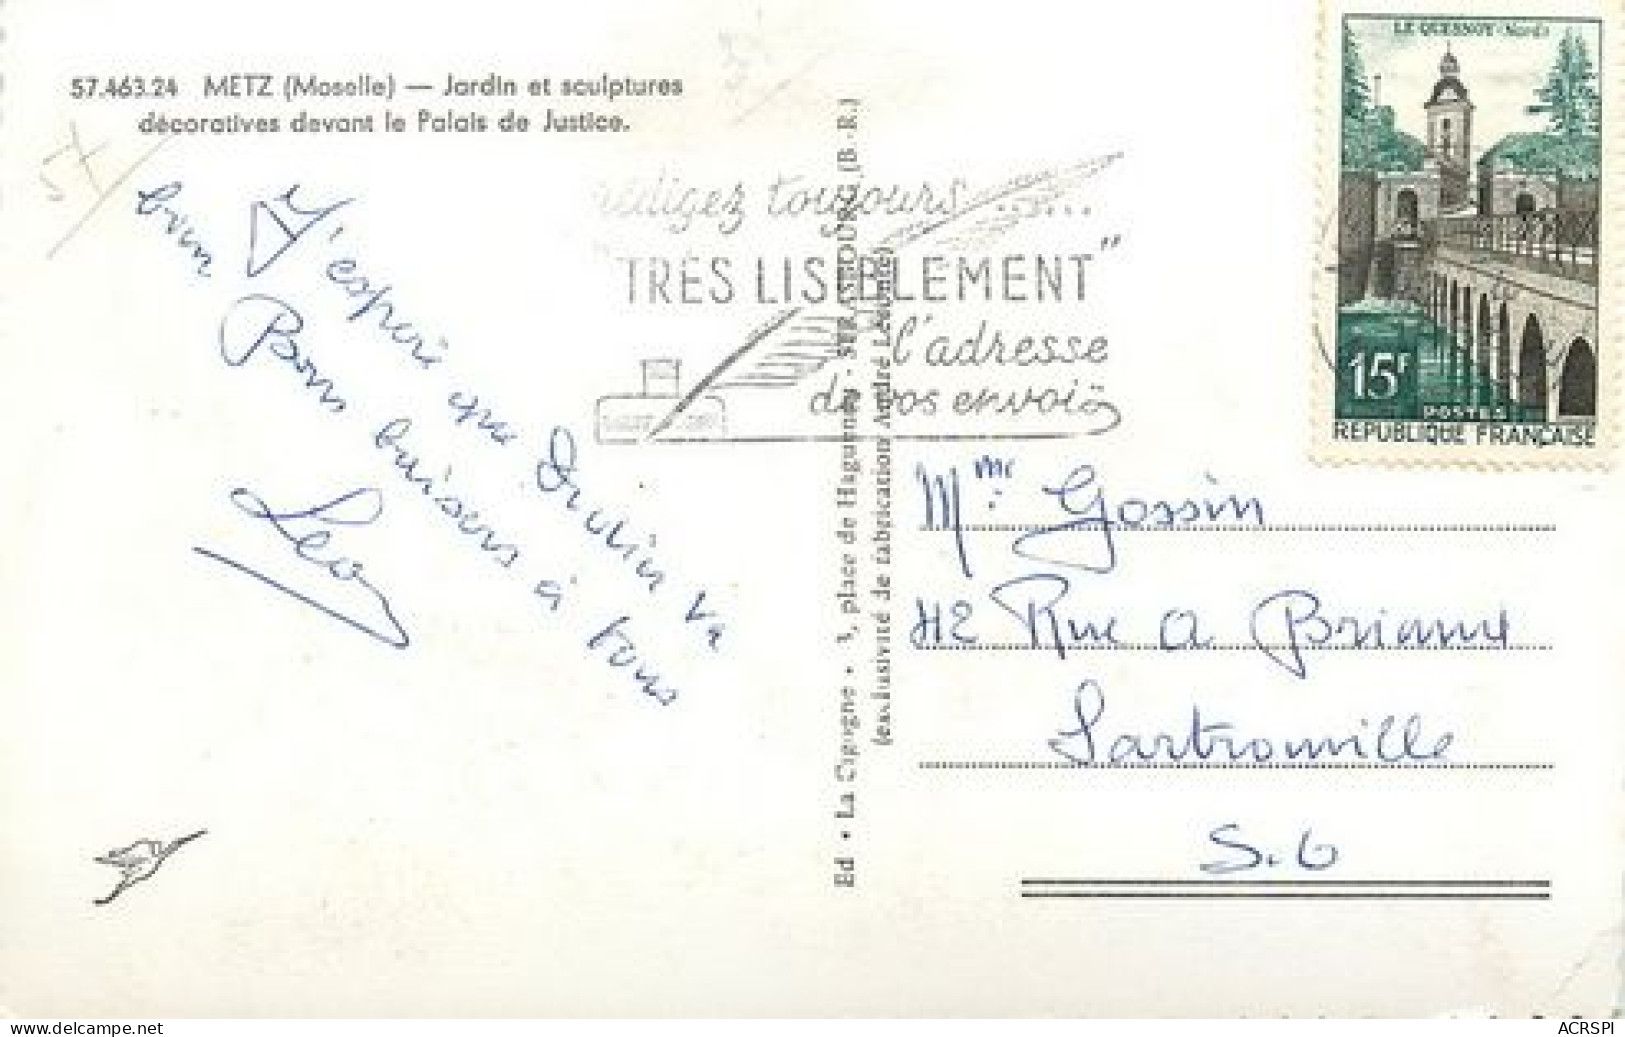 57.463.24 METZ (Moselle) — Jardin et sculptures
décoratives devant le Palais de Justice.
57
J'espere que Dudin va
bien
Bons baisers à tous
Leo
rédigez toujours ......
"TRÈS LISIBLEMENT"
l'adresse
de vos envois
Ed • La Cigogne • 3, place de Haguenau - STRASBOURG (B.-R.)
(exclusivité de fabrication André Leconte)
LE QUESNOY (Nord)
15F
POSTES
REPUBLIQUE FRANÇAISE
Mme Gossin
42 Rue A Briand
Sartrouville
S.O
www.delcampe.net
ACRSPI